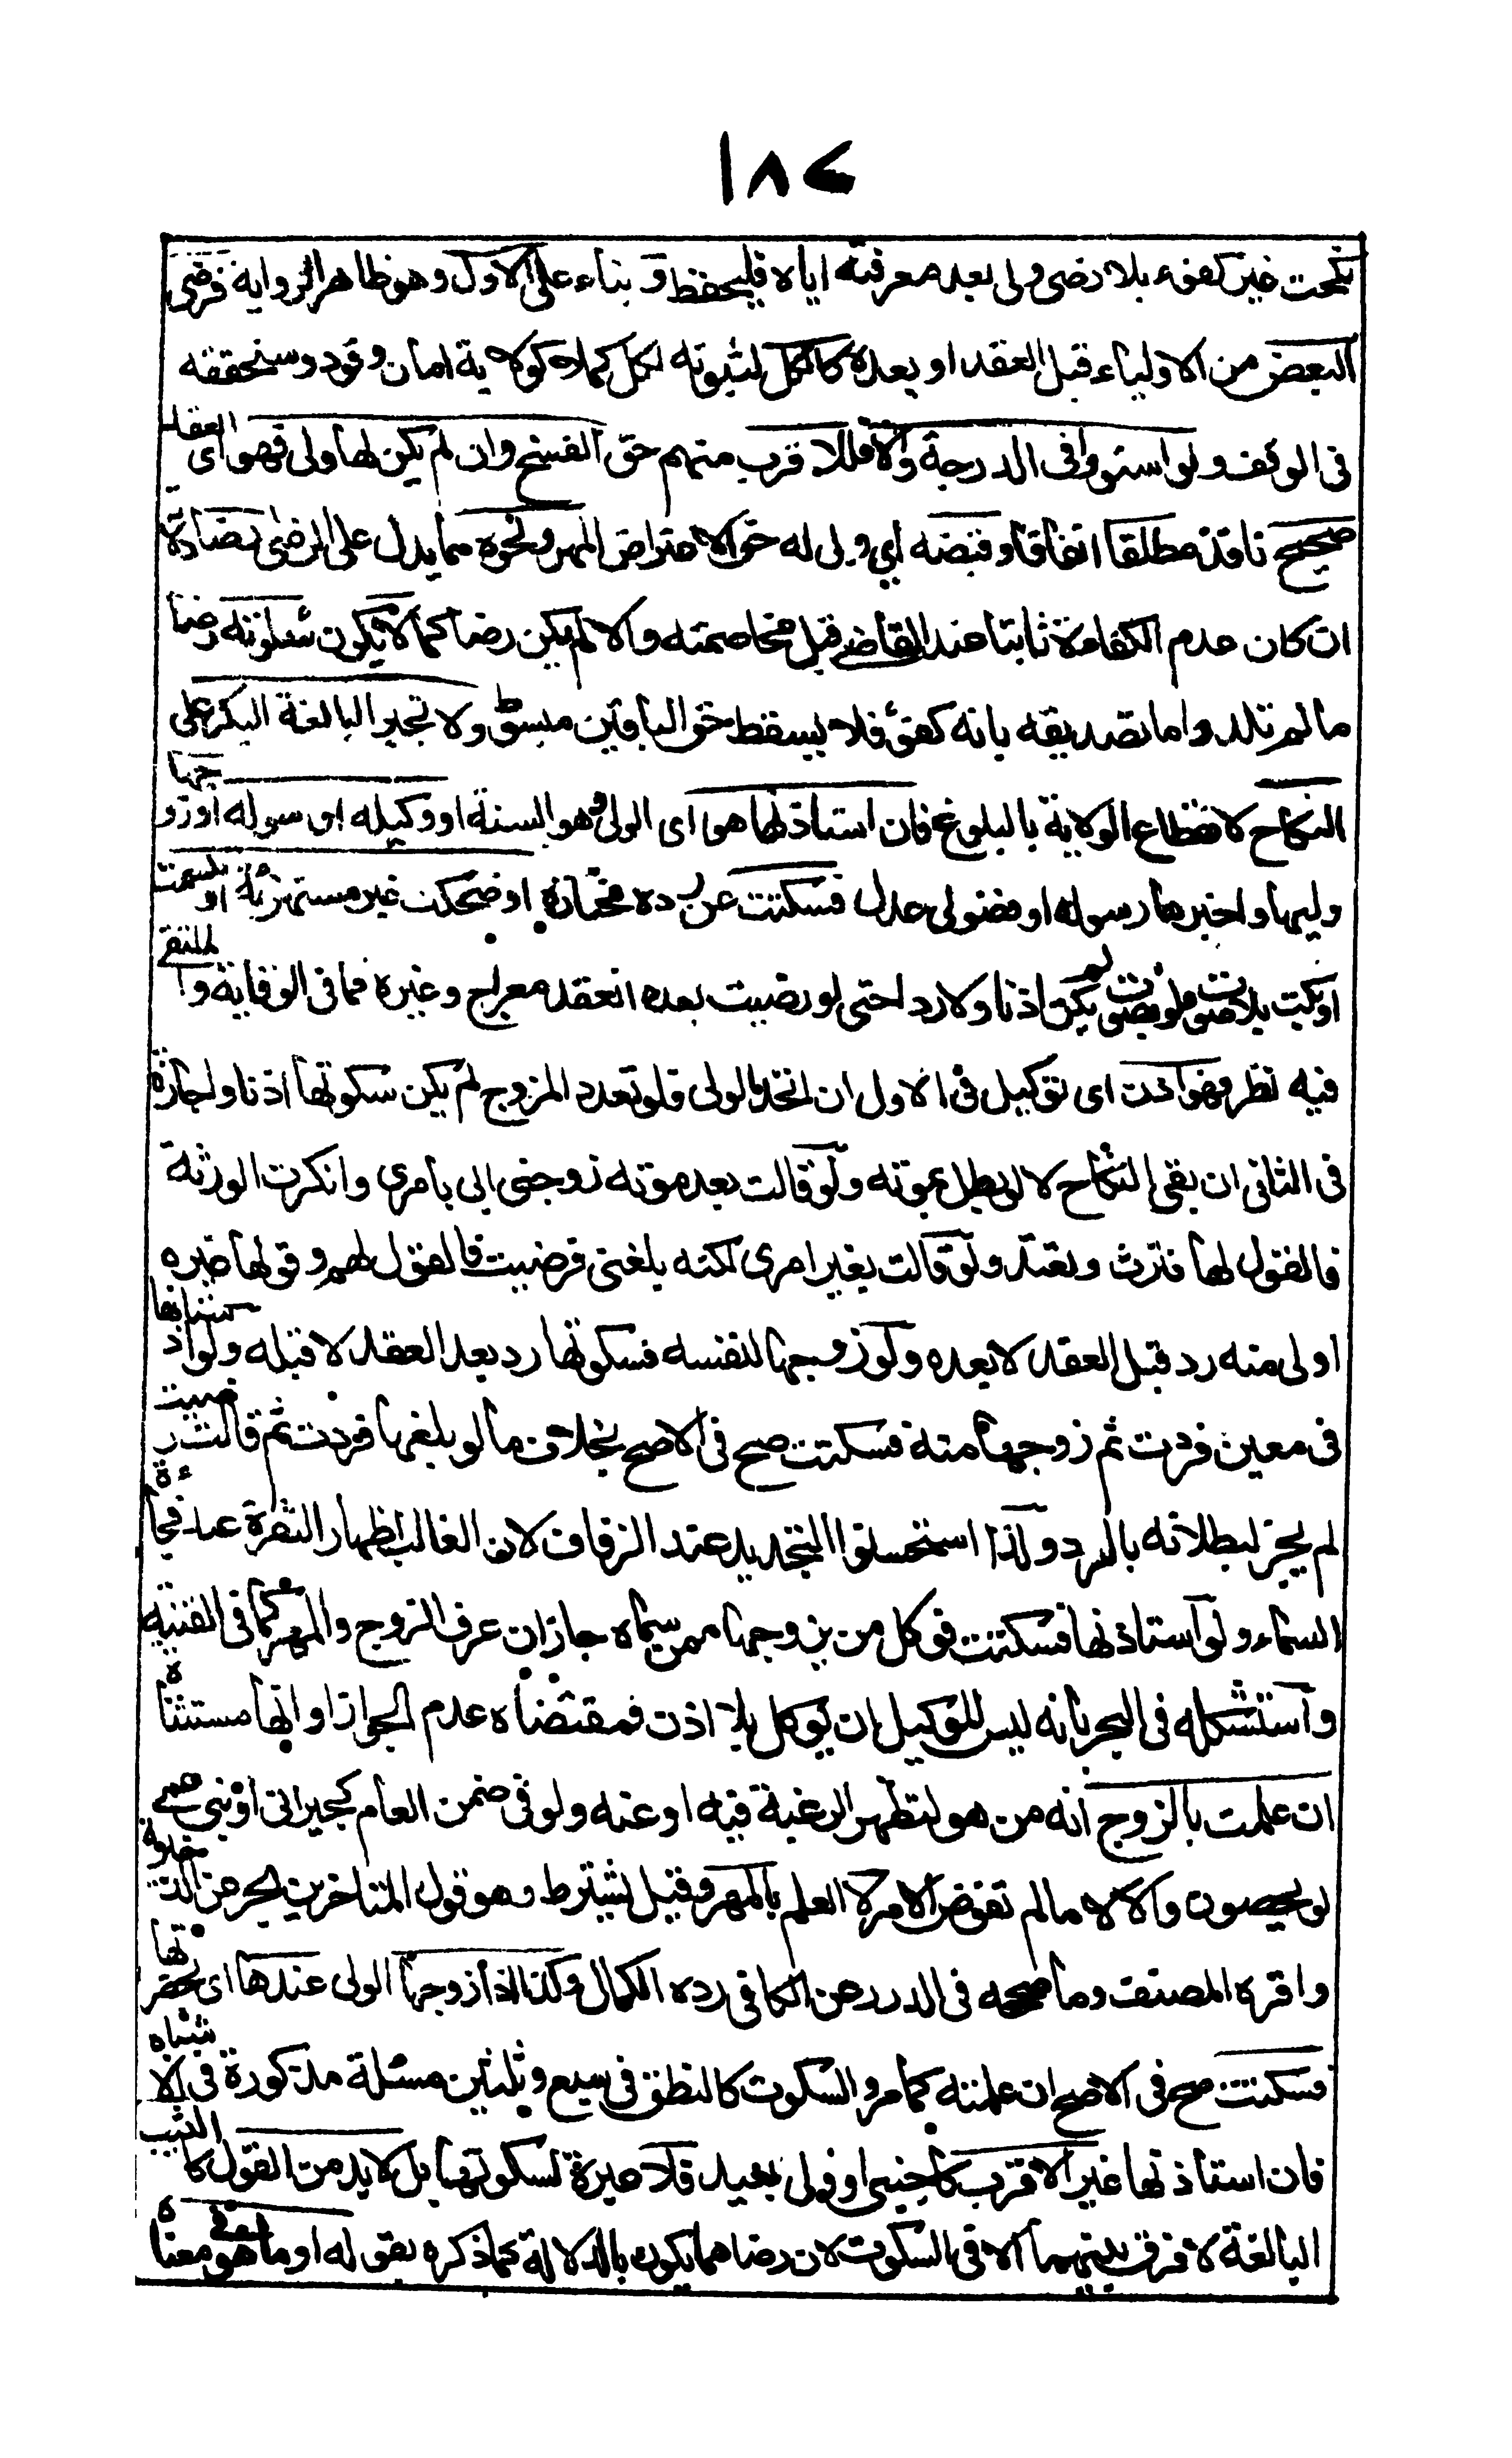 ١٨٤
نكحت غير كفؤ بلا رضى ولى بعد معرفته اياه فليحفظ و بناء على الاول وهو ظاهر الرواية فرضى
البعض من الاولياء قبل العقد او بعده كالكل لثبوته لكل كملا كولاية امان وقود وسنحققه
فى الوقف ولو استووا فى الدرجة والا فللاقرب منهم حق الفسخ وان لم يكن لها ولى فهو اى العقد
صحيح نافذ مطلقا اتفاقا وقبضه اي ولى له حق الاعتراض المهر ونحوه مما يدل على الرضى رضا دلالة
ان كان عدم الكفاءة ثابتا عند القاضى قبل مخاصمته والا لم يكن رضا كما لا يكون سكوته رضا
ما لم تلد واما تصديقه بانه كفؤ فلا يسقط حق الباقين مبسوط ولا تجبر البالغة البكر على
النكاح لانقطاع الولاية بالبلوغ فان استاذنها هو اى الولى وهو السنة او وكيله او رسوله او زوجها
وليها واخبرها رسوله او فضولى عدل فسكتت عن رده مختارة او ضحكت غير مستهزئة او تبسمت
او بكت بلا صوت فلو بصوت لم يكن اذنا ولا ردا حتى لو رضيت بعده انعقد معراج وغيره فما فى الوقاية والملتقى
فيه نظر فهو اذن اى توكيل فى الاول ان اتحد الولى فلو تعدد المزوج لم يكن سكوتها اذنا واجازة
فى الثانى ان بقى النكاح لا لو بطل بموته ولو قالت بعد موته زوجنى ابى بامرى وانكرت الورثة
فالقول لها فترث وتعتد ولو قالت بغير امرى لكنه بلغنى فرضيت فالقول لهم وقولها غيره
اولى منه رد قبل العقد لا بعده ولو زوجها لنفسه فسكوتها رد بعد العقد لا قبله ولو استاذنها
فى معين فردت ثم زوجها منه فسكتت صح فى الاصح بخلاف ما لو بلغها فردت ثم قالت رضيت
لم يجز لبطلانه بالرد ولذا استحسنوا التجديد عند الزفاف لان الغالب اظهار النفرة عند فجأة
السماع ولو استاذنها فسكتت فوكل من يزوجها ممن سماه جاز ان عرف الزوج والمهر كما فى القنية
واستشكله فى البحر بانه ليس للوكيل ان يوكل بلا اذن فمقتضاه عدم الجواز او انها مستثناة
ان علمت بالزوج انه من هو لتظهر الرغبة فيه او عنه ولو فى ضمن العام كجيرانى او بنى عمى
لو يحصون والا لا ما لم تفوض الامر لا العلم بالمهر وقيل يشترط وهو قول المتاخرين بحر عن الذخيرة
واقره المصنف وما صححه فى الدرر عن الكافى رده الكمال وكذا اذا زوجها الولى عندها اى بحضرتها
فسكتت صح فى الاصح ان علمته كما مر والسكوت كالنطق فى سبع وثلثين مسئلة مذكورة فى الاشباه
فان استاذنها غير الاقرب كاجنبى او ولى بعيد فلا عبرة لسكوتها بل لا بد من القول كالثيب
البالغة لا فرق بينهما الا فى السكوت لان رضاهما يكون بالدلالة كما ذكره بقوله او ما هو فى معناه